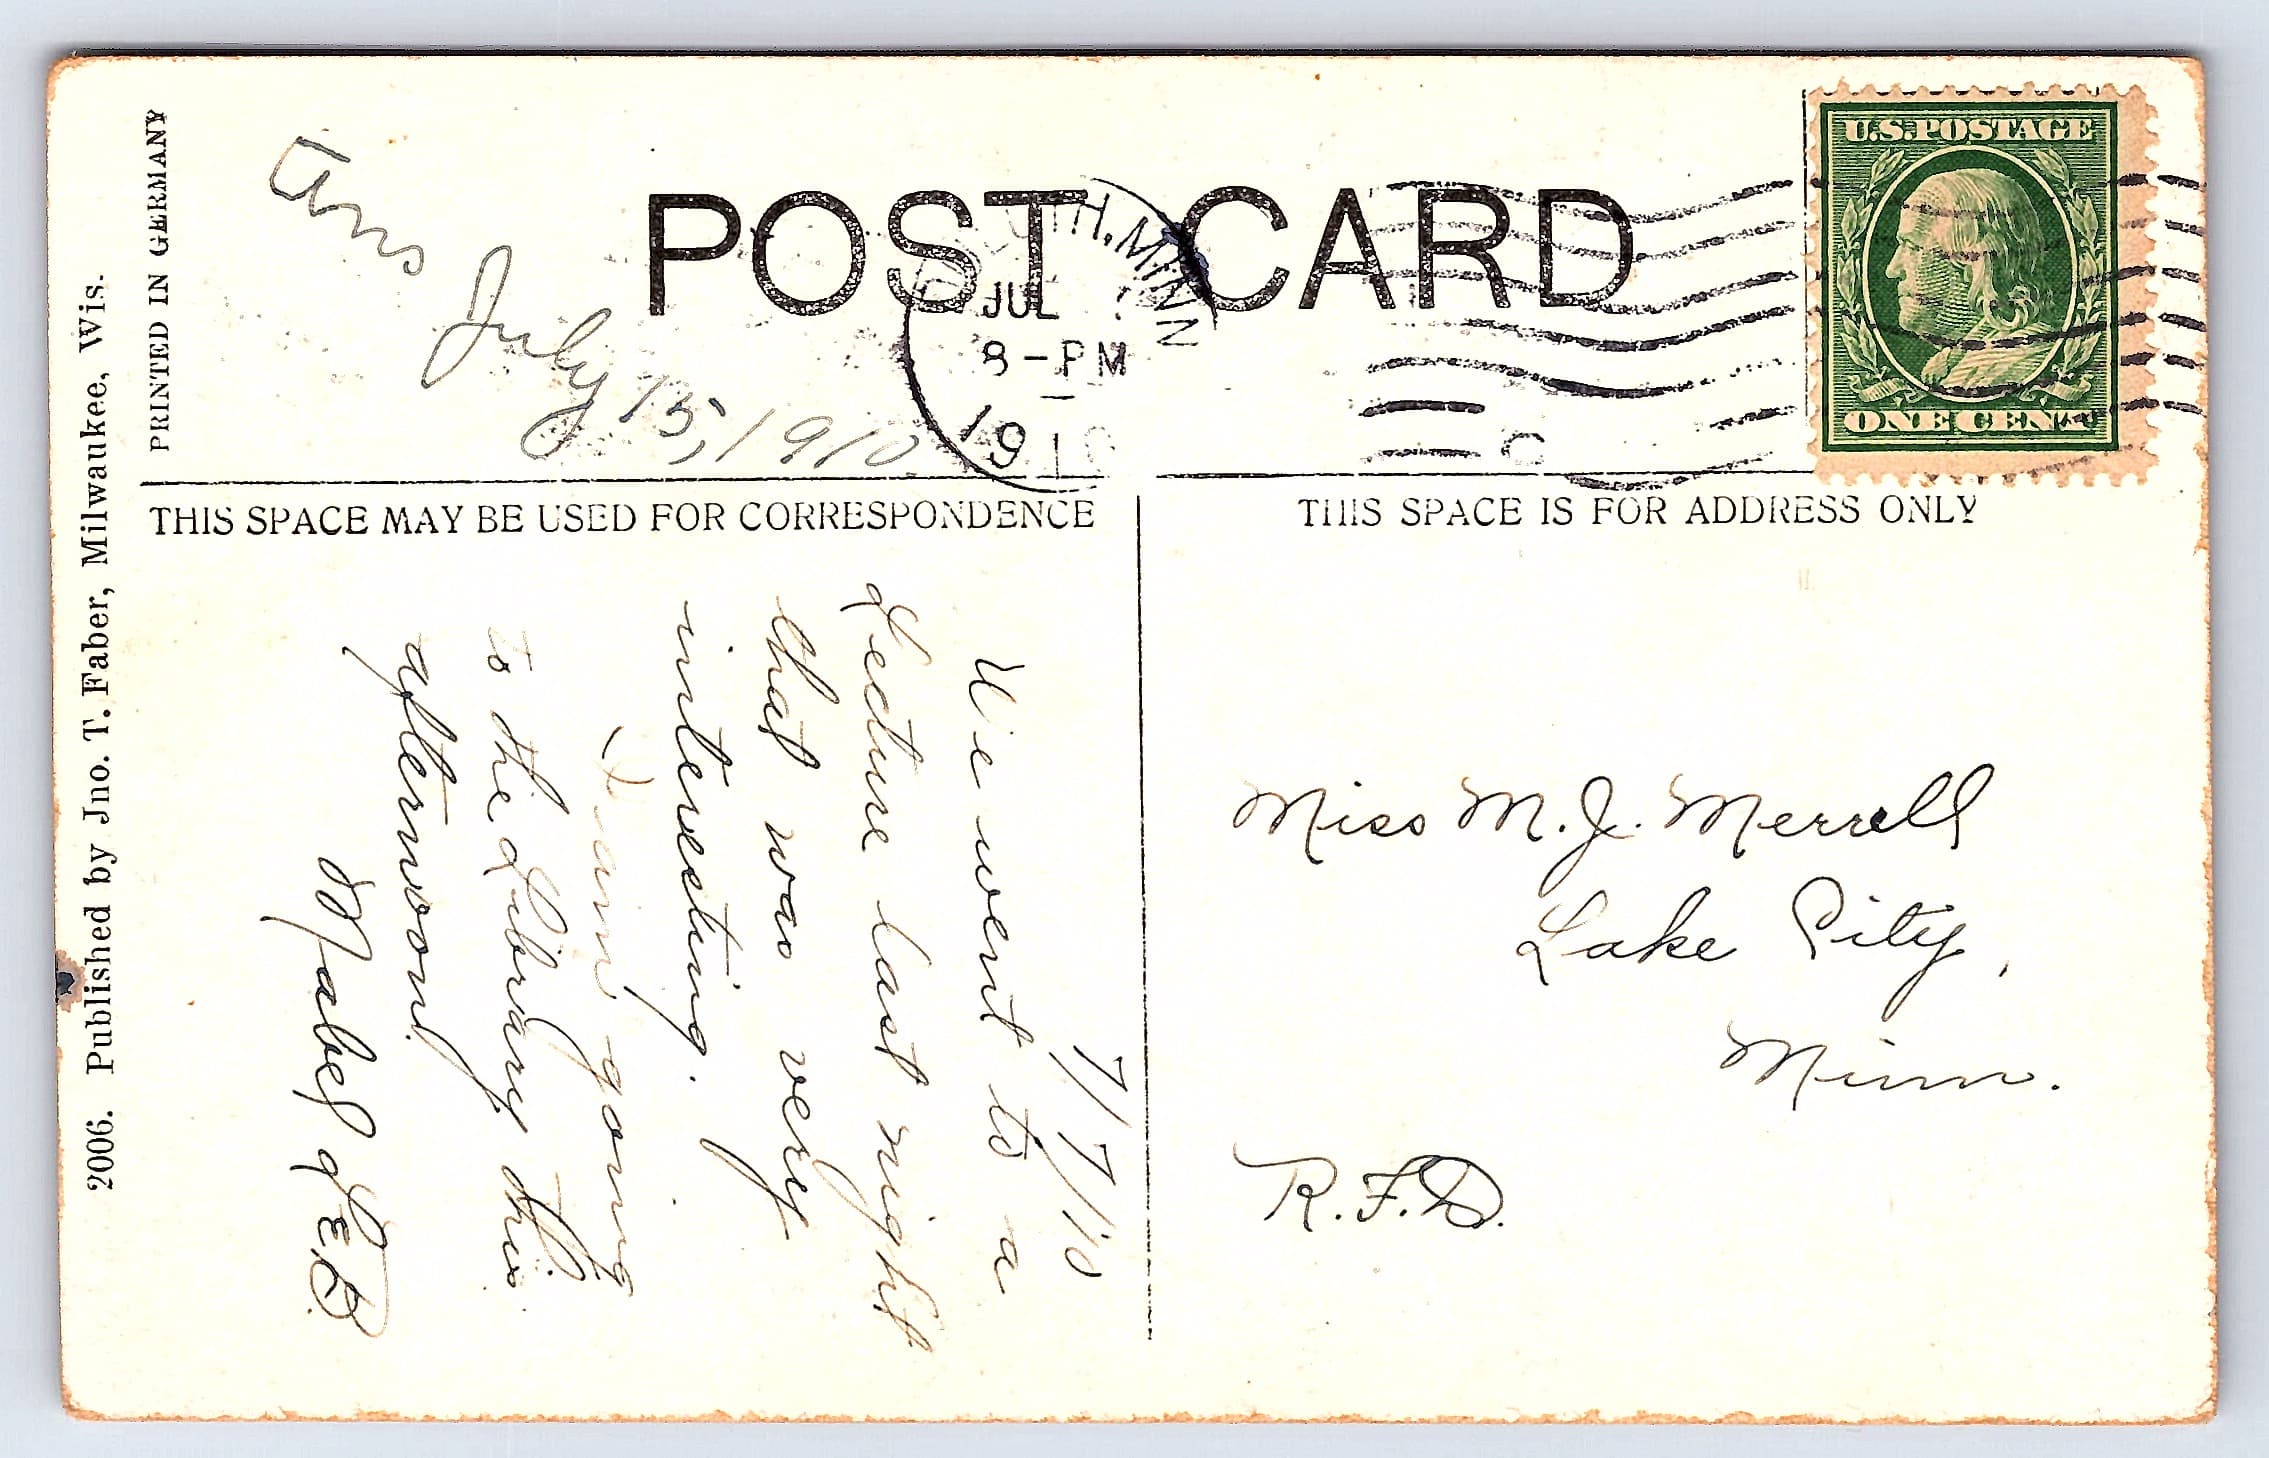 PRINTED IN GERMANY
2006. Published by Jno. T. Faber, Milwaukee, Wis.
Ans July 15, 1910
POST CARD
DULUTH, MINN
JUL
8-PM
1910
U.S. POSTAGE
ONE CENT
THIS SPACE MAY BE USED FOR CORRESPONDENCE
THIS SPACE IS FOR ADDRESS ONLY
7/7/10
We went to a
Lecture last night
that was very
interesting.
I am going
to the Library this
afternoon.
Mabel L.E.B.
Miss M. J. Merrell
Lake City,
Minn.
R.F.D.